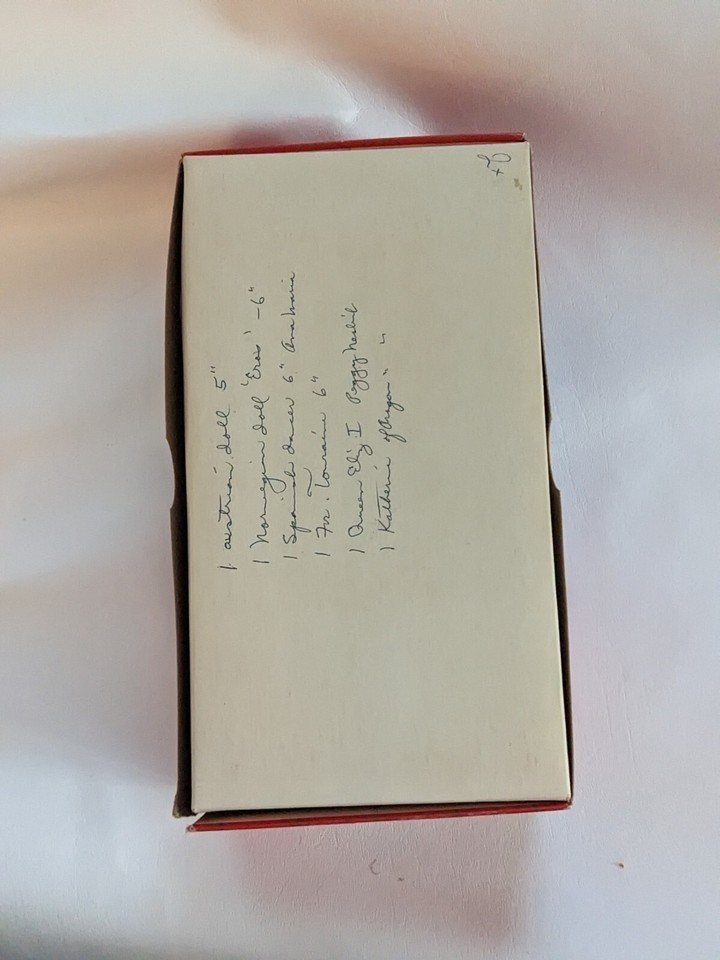 1 Austrian doll 5"
1 Norwegian doll 'Eros' - 6"
1 Spanish dancer 6" Ana Maria
1 Fr. Lorraine 6"
1 Queen Eliz I Peggy Nesbit
1 Katherine of Aragon " "